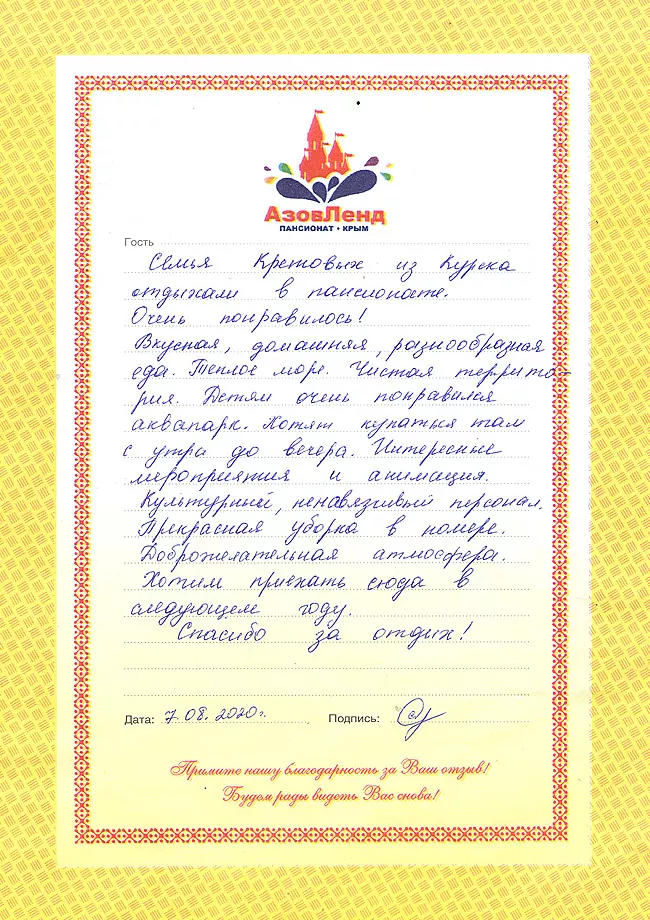 АзовЛенд
ПАНСИОНАТ • КРЫМ
Гость
Семья Кретовых из Курска
отдыхали в пансионате.
Очень понравилось!
Вкусная, домашняя, разнообразная
еда. Теплое море. Чистая террито-
рия. Детям очень понравился
аквапарк. Хотят купаться там
с утра до вечера. Интересные
мероприятия и анимация.
Культурный, ненавязчивый персонал.
Прекрасная уборка в номере.
Доброжелательная атмосфера.
Хотим приехать сюда в
следующем году.
Спасибо за отдых!
Дата: 7.08.2020г. Подпись:
Примите нашу благодарность за Ваш отзыв!
Будем рады видеть Вас снова!